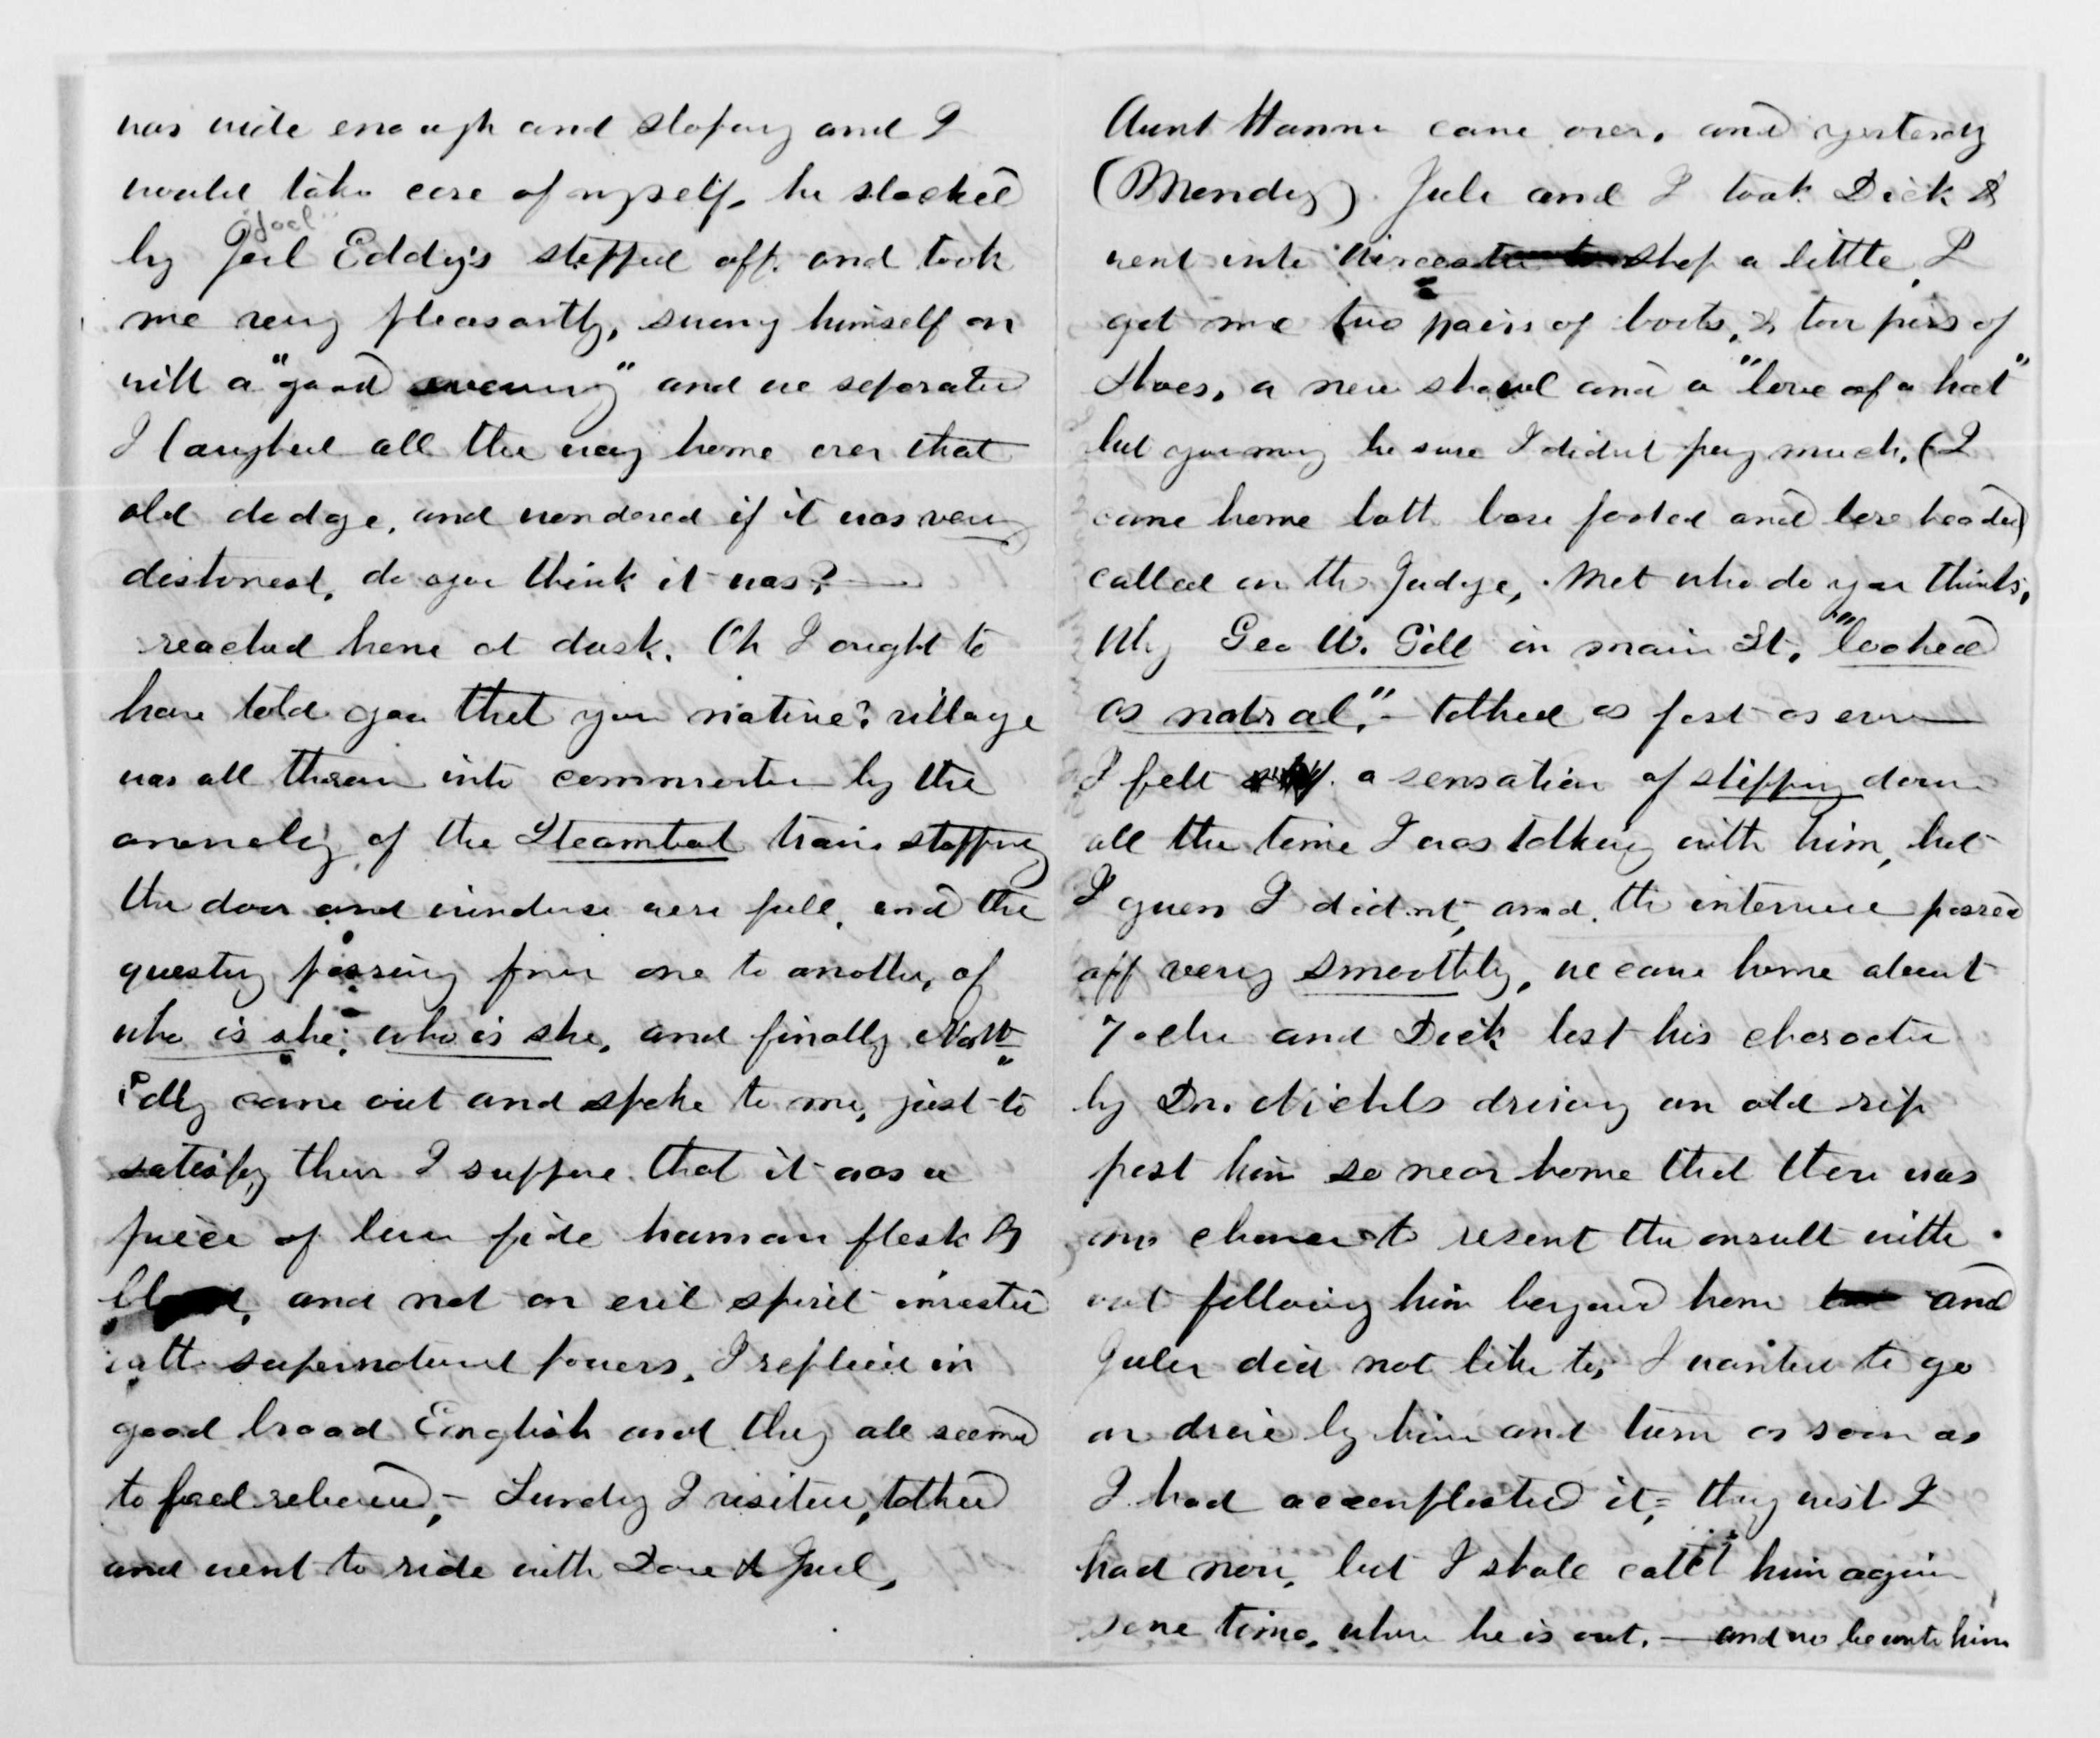 was wide enough and sloping and I
would take care of myself, he slacked
Joel
by Joel Eddy's stepped off and took
me very pleasantly, swung himself on
with a "good evening" and we seperated
I laughed all the way home over that
old dodge, and wondered if it was very
dishonest, do you think it was? —
reached home at dusk. Oh I ought to
have told you that your native? village
was all thrown into commotion by the
anomely of the Steamboat train stopping
the door and windows were full, and the
questing passing from one to another, of
who is she; who is she, and finally
Eddy came out and spoke to me, just to
satisfy them I suppose that it was a
piece of bona fide human flesh &
blood, and not an evil spirit invested
with supernatural powers, I replied in
good broad English and they all seemed
to feel relieved, – Sundy I visited, talked
and went to ride with Dave & Jule,
Aunt Hanna came over, and yesterdy
(Mondey) Jule and I took Dick &
went into Worcester to shop a little, I
got me two pairs of boots, & two pairs of
Shoes, a new shawl and a "love of a hat"
but you may be sure I didnt pay much, (I
came home both bare footed and bare headed)
called on the Judge, Met who do you think,
Why Geo W. Gill in main St, "looked
as natural," – talked as fast as ever —
I felt a sensation of slipping down
all the time I was talking with him, but
I guess I didnt, and the interview passed
off very smoothly, we came home about
7 oclk and Dick lost his character
by Dr. Nichols driving an old rip
past him so near home that there was
no chance to resent the insult with
out following him beyond home and
Juley did not like to, I wanted to go
on drive by him and turn as soon as
I had accomplished it, = they wish I
had now, but I shall catch him again
some time, when he is out. — and no